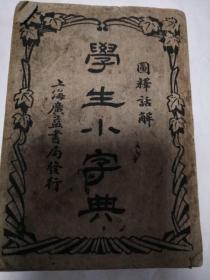 圖釋話解
學生小字典
上海廣益書局發行